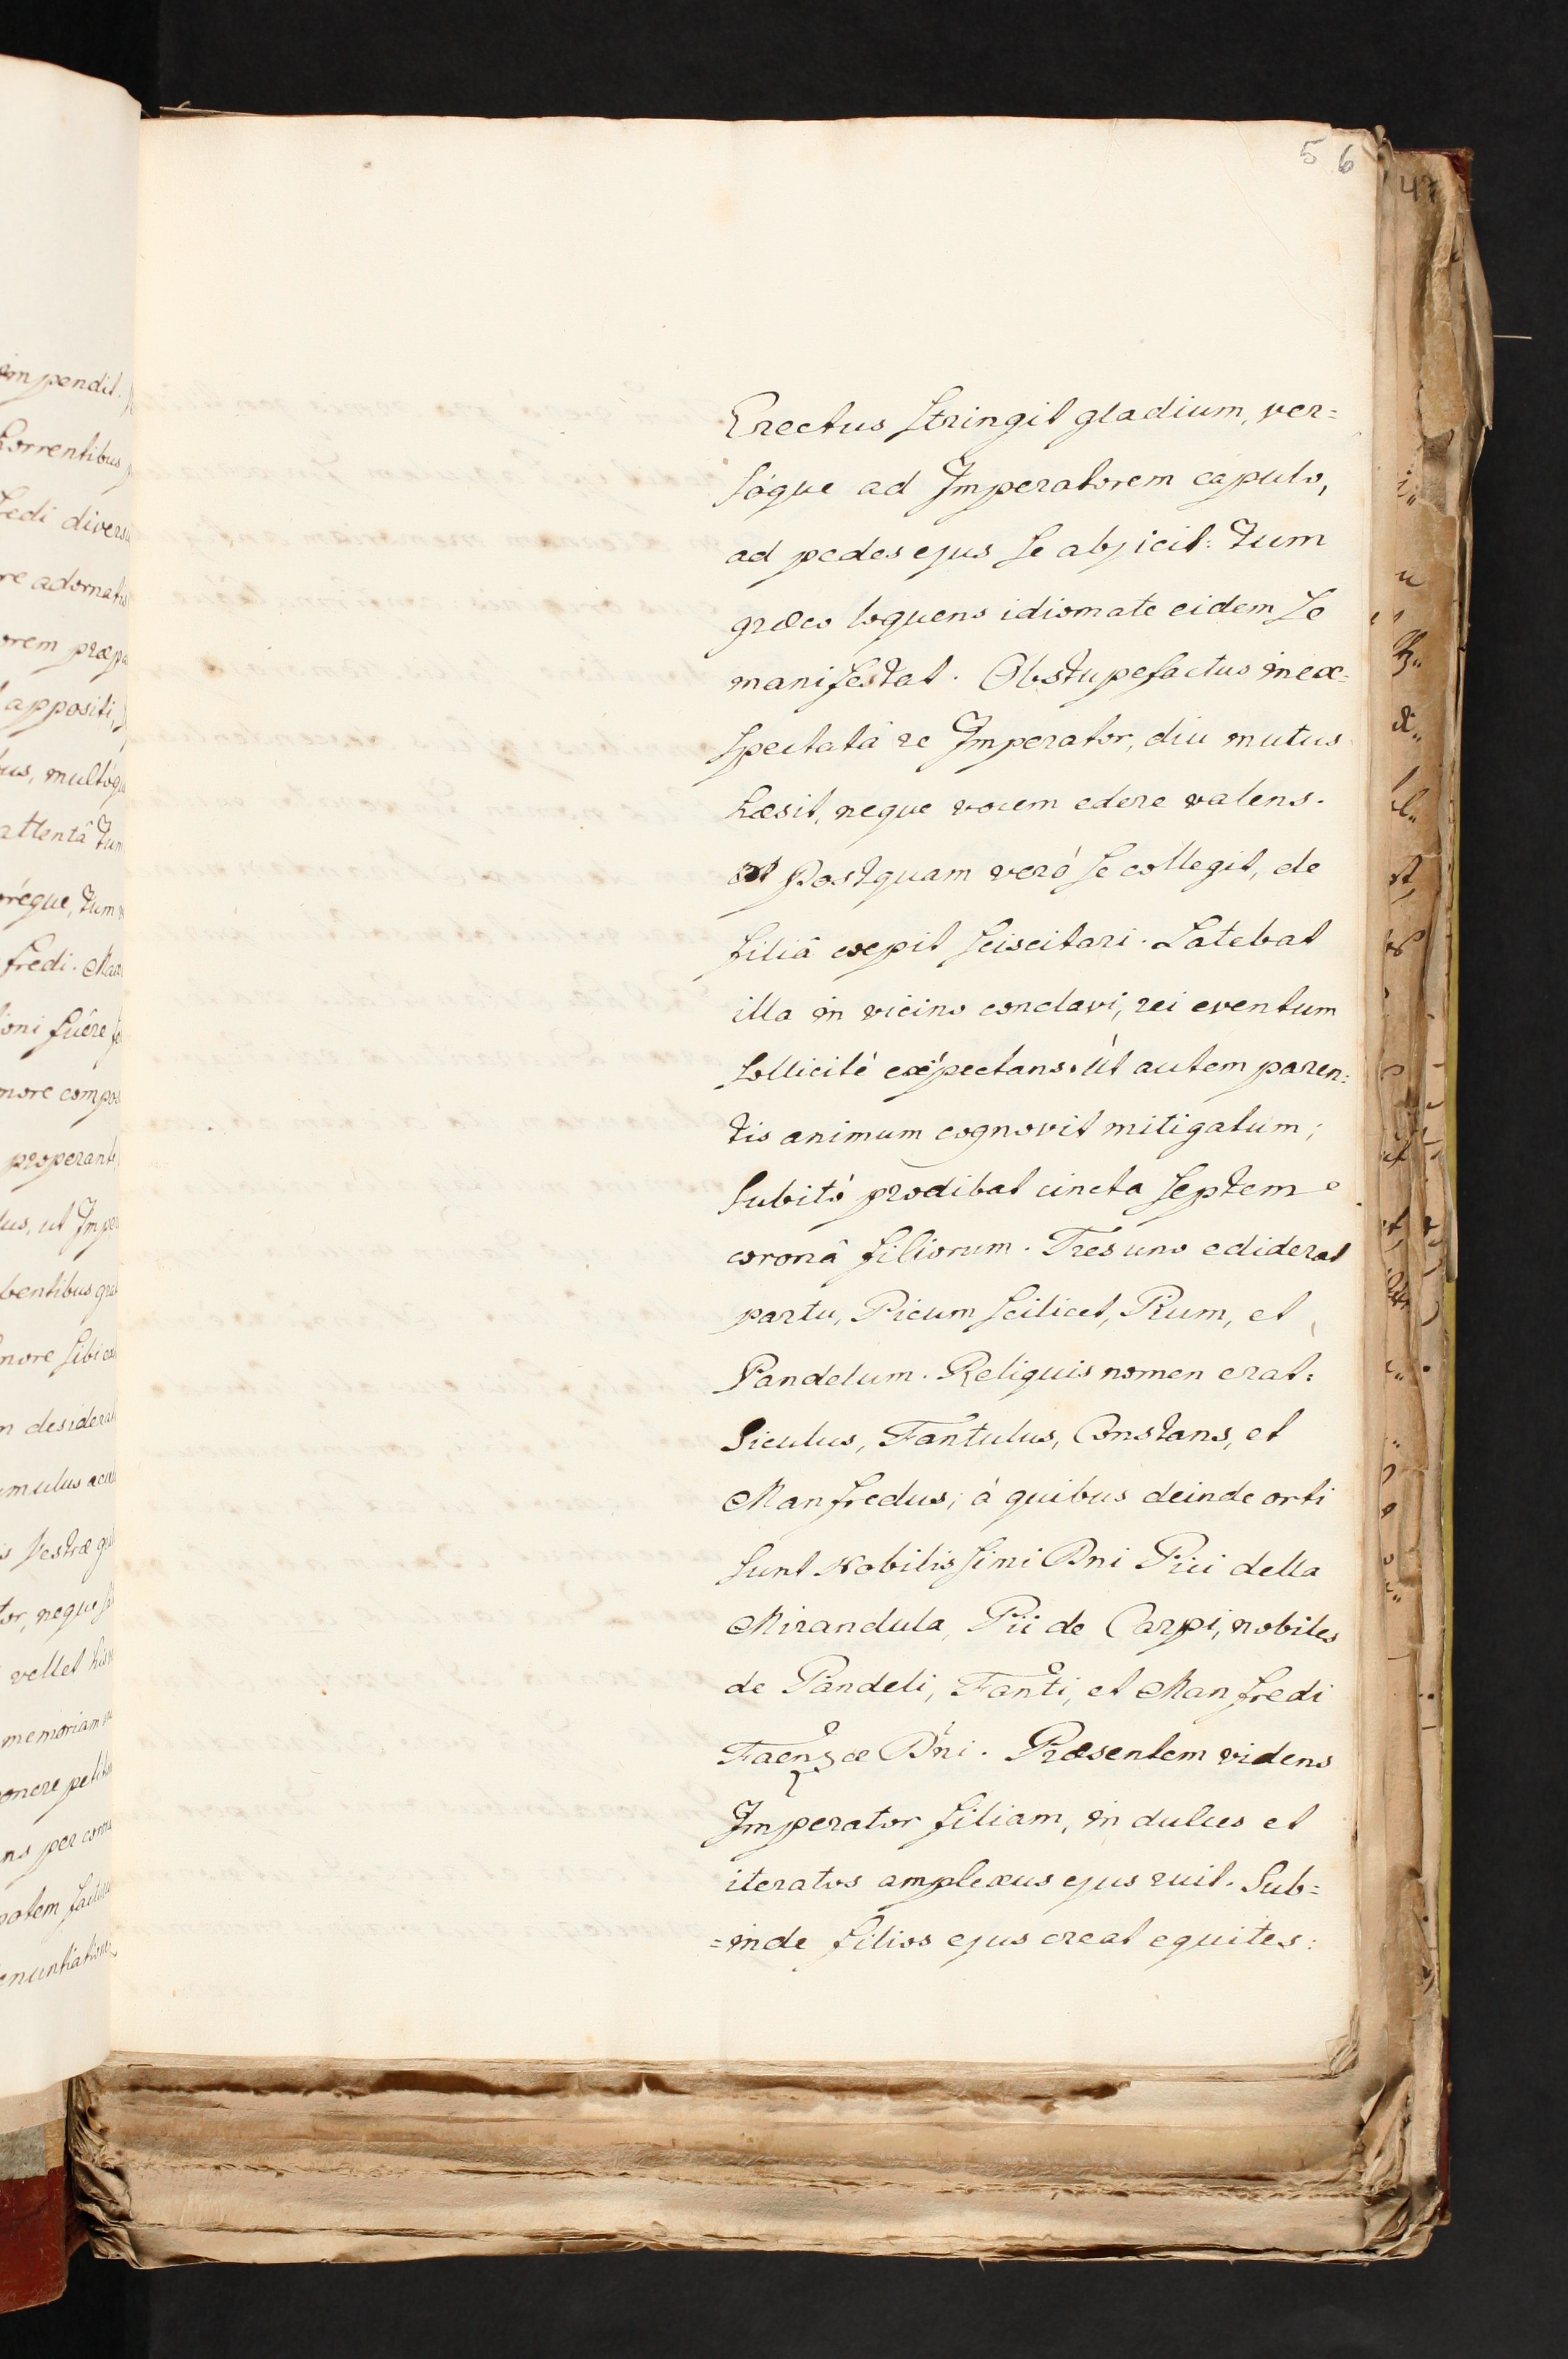 56
47
Erectus stringit gladium, ver=
sóque ad Imperatorem capulo,
ad pedes ejus se abjicit: tum
græco loquens idiomate eidem se
manifestat. Obstupefactus inex=
spectatâ re Imperator, diu mutus
hæsit, neque vocem edere valens.
Postquam verò se collegit, de
filiâ cœpit sciscitari. Latebat
illa in vicino conclavi, rei eventum
sollicitè expectans. Ut autem paren=
tis animum cognovit mitigatum;
subitò prodibat cincta septem
coronâ filiorum. Tres uno ediderat
partu, Picum scilicet, Pium, et
Pandelum. Reliquis nomen erat:
Siculus, Fantulus, Constans, et
Manfredus; à quibus deinde orti
sunt Nobilissimi Dni Pici della
Mirandula, Pii de Carpi, nobiles
de Pandeli, Fanti, et Manfredi
Faenzæ Dni. Præsentem videns
Imperator filiam, in dulces et
iteratos amplexus ejus ruit. Sub=
=inde filios ejus creat equites:
impendit.
horrentibus
Sedi
adornatis
appositi,
attentâ tum
fredi.
fuêre
more
properante
ut
more sibi
vellet
memoriam
per